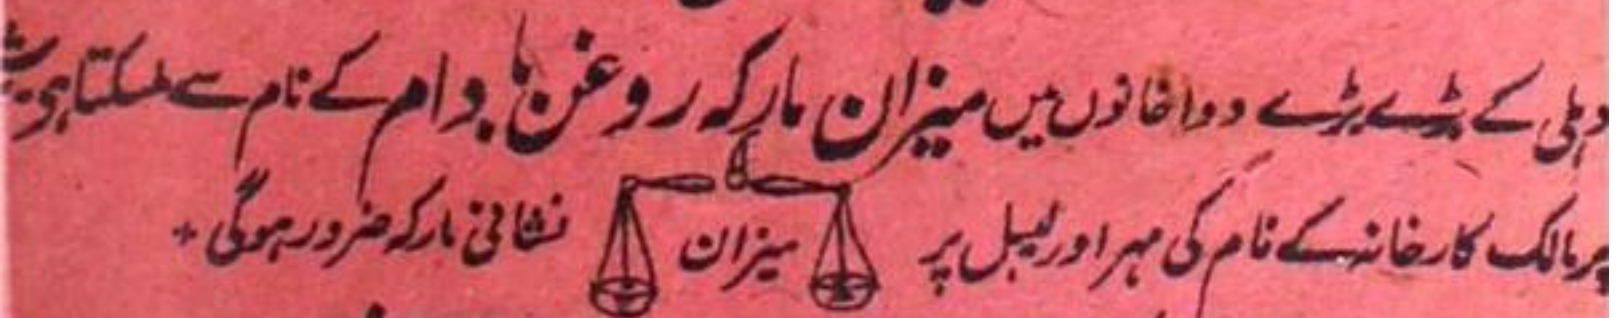 دہلی کے بڑے بڑے دواخانوں میں میزان مارکہ روغن بادام کے نام سے ملسکتا ہی
پر مالک کارخانہ کے نام کی مہر اور لیبل پر میزان نشانی مارکہ ضرور ہوگی +